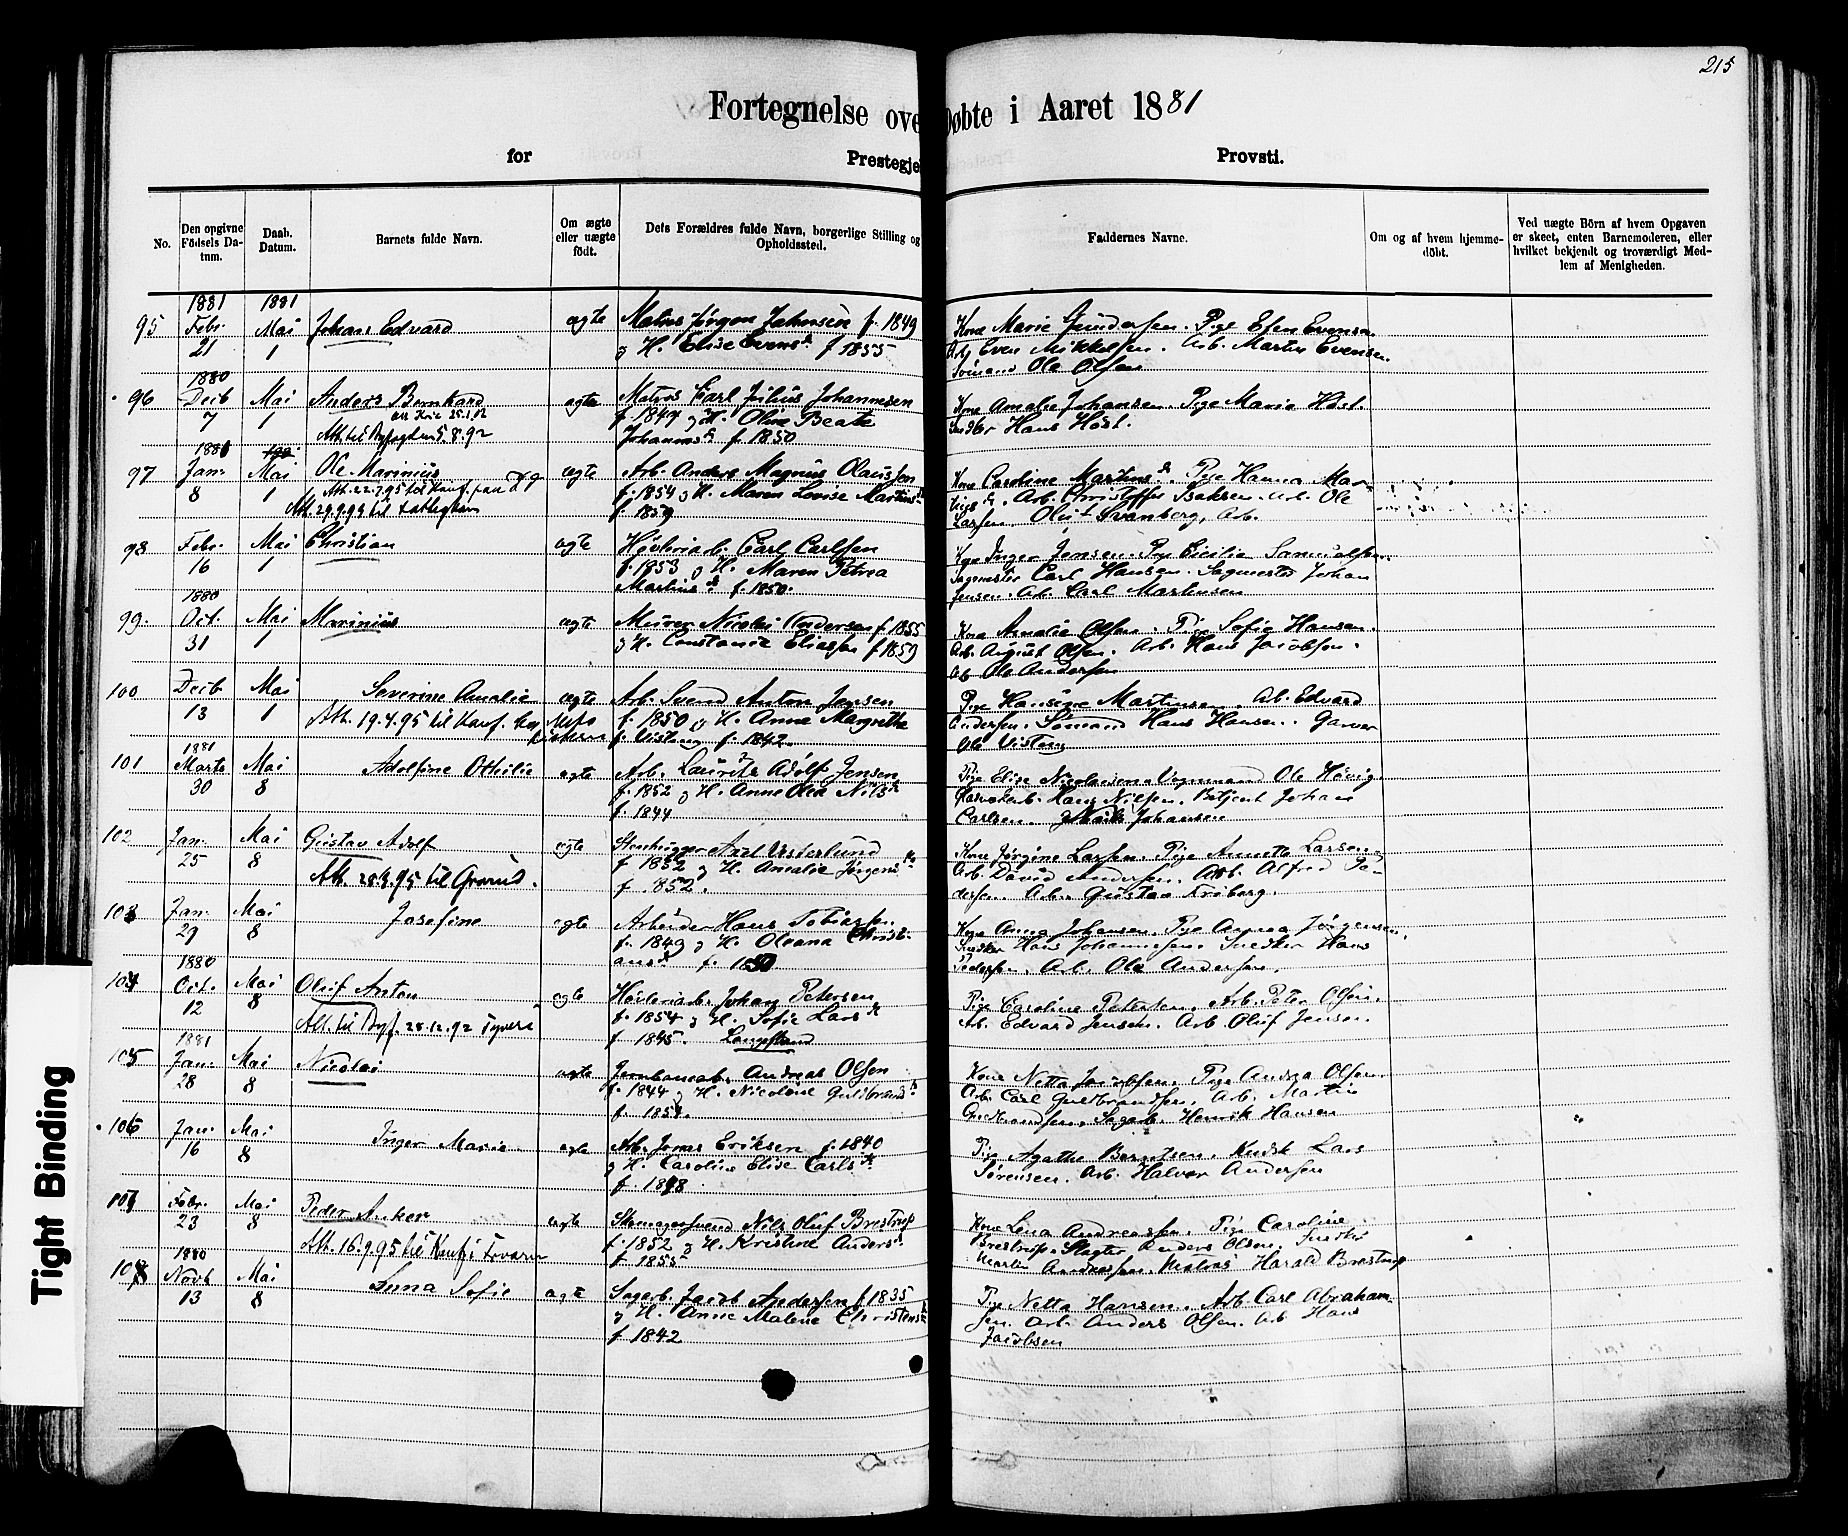 215
Fortegnelse ove Døbte i Aaret 1881
for Prestegje Provsti.
No.
Den opgivne Födsels Datum.
Daab. Datum.
Barnets fulde Navn.
Om ægte eller uægte födt.
Dets Forældres fulde Navn, borgerlige Stilling og Opholdssted.
Faddernes Navne.
Om og af hvem hjemmedöbt.
Ved uægte Börn af hvem Opgaven er skeet, enten Barnemoderen, eller hvilket bekjendt og troværdigt Medlem af Menigheden.
1881 1881
95 Febr. Mai Johans Edvard ægte Matros Jörgen Jahnsen f. 1849 Kone Marie Gundersen. Pige Efen Evensen
21 1 og H. Elise Evensd. f 1855 Arb. Even Mikkelsen. Arb. Martin Evensen.
Sömand Ole Olsen
1880
96 Decb Mai Anders Bernhard ægte Matros Carl Julius Johannesen Kone Amalie Johansen. Pige Marie Höst.
7 1 f. 1847 og H. Oline Beate Snedker Hans Höst.
Att. til Byfogden 5.8.92 Johannsd. f. 1850
1881
97 Jan. Mai Ole Marinius ægte Arb. Anders Magnus Olaussen Kone Caroline Martinsd. Pige Hanna Mar-
8 1 f. 1854 og H. Maren Lovise Martinsd. Arb. Christoffer Isaksen. Arb. Ole
f 1859 Larsen Oluf Svanberg, Arb.
98 Febr. Mai Christian ægte Hövleriarb. Carl Carlsen Kone Inger Jensen. Pige Cicilie Samuelsen.
16 1 f. 1853 og H. Maren Petrea Sagmester Carl Hansen. Sagmester Johan
Martinsd. f. 1850. Jensen. Arb. Carl Martinsen
1880
99. Oct. Mai Marinius ægte Murer Nicolai Andersen f 1855 Kone Amalie Olsen. Pige Sofie Hansen.
31 1 og H. Constance Eliassen f 1859 Arb. August Olsen. Arb. Hans Jacobsen.
Arb Ole Andersen
100 Decb Mai Severine Amalie ægte Arb. Svend Anton Jensen Pige Hansine Martinsen. Ab. Edvard
13 1 Att. 19.4.95 til Konf. f. 1850 og H. Anne Margrethe Andersen. Sömand Hans Hansen. Garver
f. Vistung f. 1842. Ole Vistung
1881
101 Marts Mai Adolfine Othilie ægte Arb. Laurits Adolf Jensen Pige Elise Nicolaisen. Vognmand Ole Hövig.
30 8 f. 1852 og H. Anne Olea Nilsd. Hans Nilsen. Betjent Johan
f. 1844 Carlsen. Johansen
102 Jan. Mai Gustav Adolf ægte Stenhugger Axel Vesterlund Kone Jörgine Larsen. Pige Annette Larsen.
25 8 f 1852 og H. Amalie Jörgensd. Arb. David Andersen. Arb. Alfred Pe-
Att. 28.9.95 til Grorud. f. 852. dersen. Arb. Gustav Friberg.
103 Jan. Mai Josefine ægte Arbeider Hans Tobiassen Kone Anna Johansen. Pige Anna Jörgensen.
29 8 f. 1849 og H. Oleana Christi- Snedker Hans Johannesen. Snedker Hans
ansd. f. 1850 Pedersen. Arb. Ole Andersen.
1880
104 Oct. Mai Oluf Anton ægte Hövleriarb. Johan Petersen Pige Caroline Petersen. Arb. Peter Olsen.
12 8 Att. til Byf. 28.12.92 Tyveri f. 1854 og H. Sofie Larsd. Arb. Edvard Jensen. Arb. Oluf Jensen.
f 1845. Langestrand
1881
105 Jan. Mai Nicolai ægte Jernbanearb. Andreas Olsen Kone Netta Jacobsen. Pige Andrea Olsen.
28 8 f. 1844 og H. Nicoline Guldbrandsd. Arb. Carl Guldbrandsen. Arb. Martin
f. 1851. Gudbrandsen. Sagarb. Henrik Hansen
106 Jan. Mai Inger Marie ægte Arb. Jonas Eriksen f. 1840 Pige Agathe Berntsen. Kudsk Lars
16 8 og H. Caroline Elise Carlsd. Sörensen. Arb. Halvor Andersen
f. 1848.
107 Febr. Mai Peder Anker ægte Skomagersvend Nils Oluf Brestrup Kone Lena Andreassen. Pige Caroline
23 8 Att. 16.9.95 til Konf. i Torvaren f. 1852 og H. Kristine Andersd. Brestrup. Slagter Anders Olsen. Snedker
f 1855 Martin Andreassen. Matros Harald Brestrup
1880
108 Novb Mai Anna Sofie ægte Sagarb. Jacob Andersen f. 1835 Pige Netta Hansen. Arb. Carl Abraham-
13 8 og H. Anne Malene Christensd. sen. Arb. Anders Olsen. Arb Hans
f. 1842 Jacobsen
Tight Binding